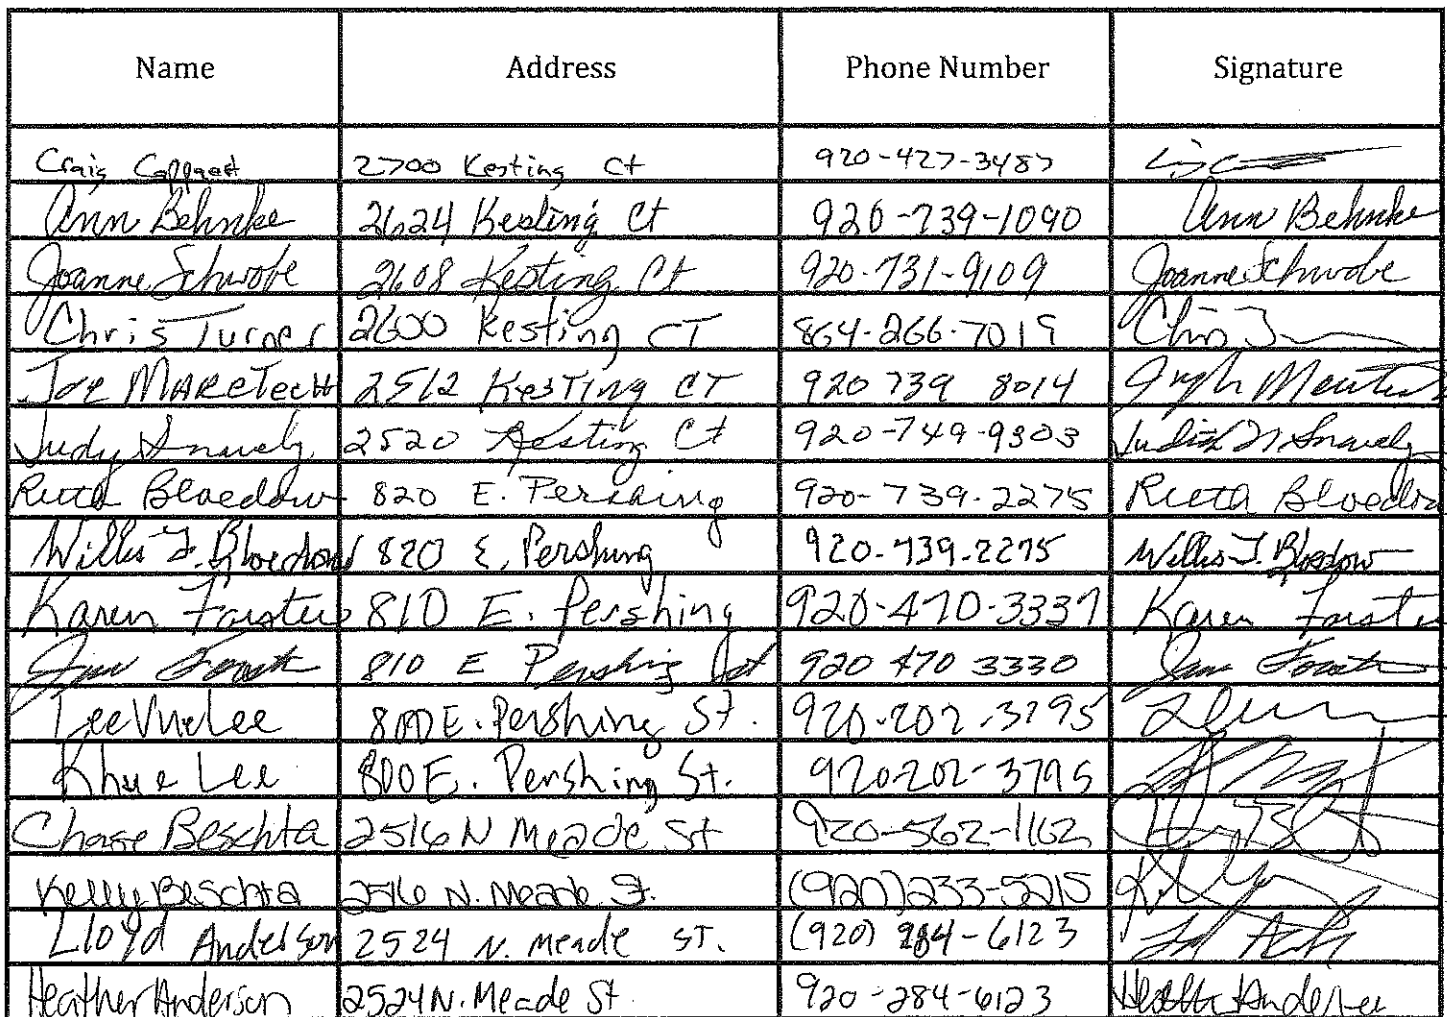 Name Address Phone Number Signature
Craig 2700 Kesting Ct 920-427-3487
Ann Behnke 2624 Kesting Ct 920-739-1090 Ann Behnke
Joanne Schwobe 2608 Kesting Ct 920-731-9109 Joanne Schwobe
Chris Turner 2600 Kesting CT 864-266-7019 Chris
Joe MARCTecH 2512 KesTing CT 920 739 8014
Judy Snavely 2520 Kesting Ct 920-749-9303 Judith M Snavely
Ruth Bloedow 820 E. Pershing 920-739-2275 Ruth Bloedow
Willis J. Bloedow 820 E. Pershing 920-739-2275 Willis J. Bloedow
Karen Forster 810 E. Pershing 920-470-3337 Karen Forster
810 E Pershing 920 470 3330
Lee Vue Lee 800 E. Pershing St. 920-202-3795
Khue Lee 800 E. Pershing St. 920-202-3795
Chase Beschta 2516 N Meade St 920-562-1162
Kelly Beschta 2516 N. Meade St. (920) 233-5215
Lloyd Anderson 2524 N. Meade ST. (920) 284-6123
Heather Anderson 2524 N. Meade St 920-284-6123 Heather Anderson